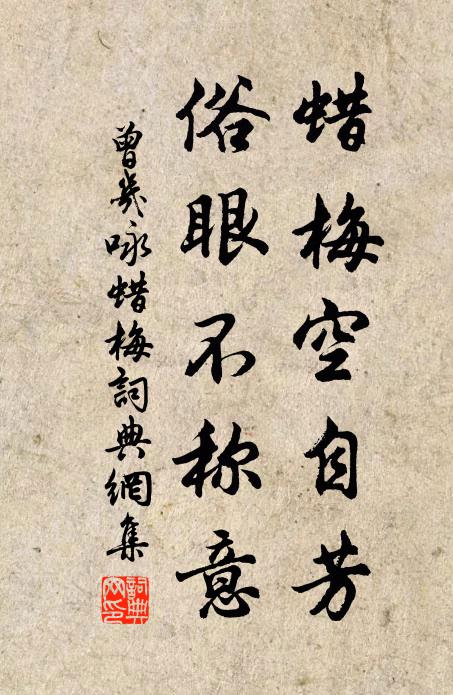 蜡梅空自芳
俗眼不称意
曾几咏蜡梅詞典網集
詞典网印